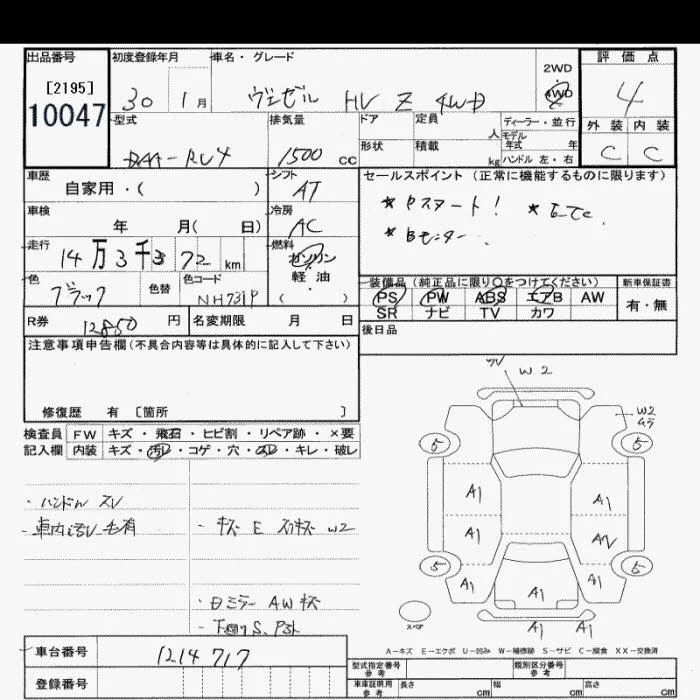 出品番号
[2195]
10047
初度登録年月
30 1月
車名・グレード
ヴェゼル HV Z 4WD
2WD
4WD
評価点
4
外装 内装
C C
型式
DAA-RU4
排気量
1500 cc
ドア
形状
定員
人
積載
kg
ディーラー・並行
モデル
年式 年
ハンドル 左・右
車歴
自家用・( )
シフト
AT
セールスポイント (正常に機能するものに限ります)
* Pスタート! * ETC
* Bモニター
車検
年 月( 日)
冷房
AC
走行
14万3千372km
燃料
ガソリン
・
軽油
( )
色
ブラック
色替
色コード
NH731P
装備品 (純正品に限り○をつけてください)
PS PW ABS エアB AW
SR ナビ TV カワ
新車保証書
有・無
R券
12850円
名変期限 月 日
後日品
注意事項申告欄(不具合内容等は具体的に記入して下さい)
修復歴 有 〔箇所 〕
検査員
記入欄
FW キズ・飛石・ヒビ割・リペア跡・×要
内装 キズ・汚レ・コゲ・穴・スレ・キレ・破レ
・ハンドル スレ
・車内汚レ 毛有
・キズ E スリキズ W2
・日ミラー AW キズ
・下廻りS,
W2
W2
ムラ
5 5
A1 A1
A1 AV
5 5
A1 A1 A1
A1 A1
スペア
A-キズ E-エクボ U-凹み W-補修跡 S-サビ C-腐食 XX-交換済
車台番号
1214717
登録番号
型式指定番号
参考
類別区分番号
参考
車庫証明用
参考
長さ cm
幅 cm
高さ cm